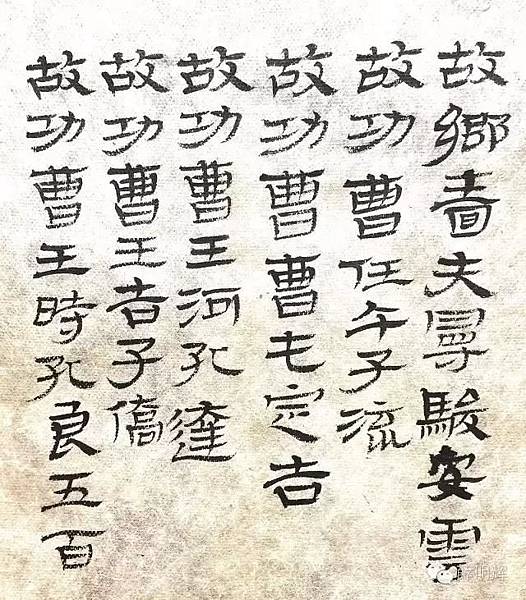 故鄉嗇夫曼駿安雲
故功曹任午子流
故功曹曹屯定吉
故功曹王河孔達
故功曹王吉子僑
故功曹王時孔良五百